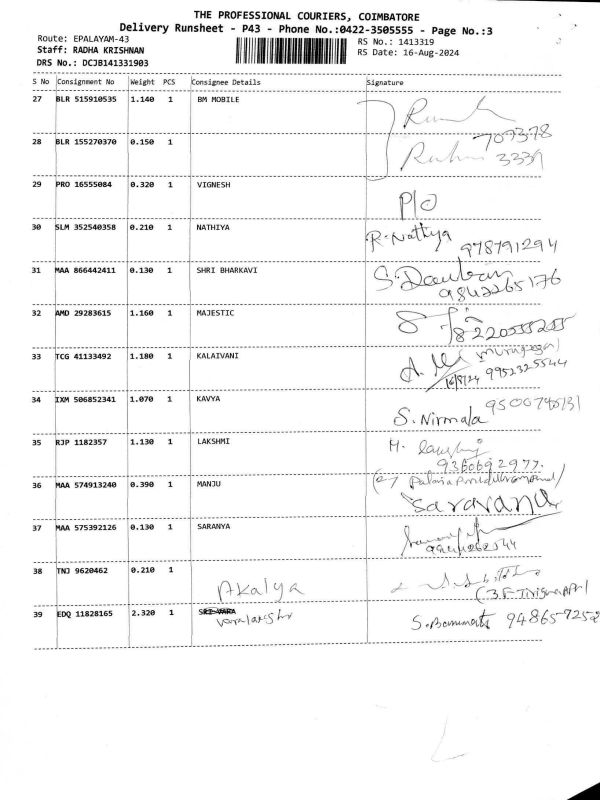 THE PROFESSIONAL COURIERS, COIMBATORE
Delivery Runsheet - P43 - Phone No.:0422-3505555 - Page No.:3
Route: EPALAYAM-43
RS No.: 1413319
Staff: RADHA KRISHNAN
RS Date: 16-Aug-2024
DRS No.: DCJB141331903
S No Consignment No Weight PCS Consignee Details Signature
27 BLR 515910535 1.140 1 BM MOBILE
28 BLR 155270370 0.150 1
3339
29 PRO 16555084 0.320 1 VIGNESH
P/O
30 SLM 352540358 0.210 1 NATHIYA R. Nathiya
978791294
31 MAA 866442411 0.130 1 SHRI BHARKAVI
9842265176
32 AMD 29283615 1.160 1 MAJESTIC
33 TCG 41133492 1.180 1 KALAIVANI
16/8/24 9952325544
34 IXM 506852341 1.070 1 KAVYA
S. Nirmala
35 RJP 1182357 1.130 1 LAKSHMI M.
9360692977.
36 MAA 574913240 0.390 1 MANJU
Saravana
37 MAA 575392126 0.130 1 SARANYA
38 TNJ 9620462 0.210 1
Akalya
39 EDQ 11828165 2.320 1
94865-7252